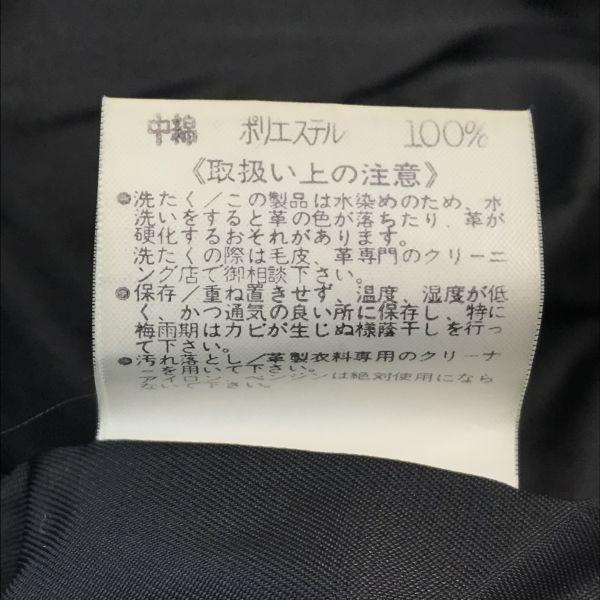 中綿 ポリエステル 100%
《取扱い上の注意》
●洗たく／この製品は水染めのため、水
洗いをすると革の色が落ちたり、革が
硬化するおそれがあります。
洗たくの際は毛皮、革専門のクリーニ
ング店で御相談下さい。
●保存／重ね置きせず、温度、湿度が低
く、かつ通気の良い所に保存し、特に
梅雨期はカビが生じぬ様蔭干しを行っ
て下さい。
●汚れ落とし／革製衣料専用のクリーナ
ーを用いて下さい。
アイロン、ベンジンは絶対使用になら
ないで下さい。